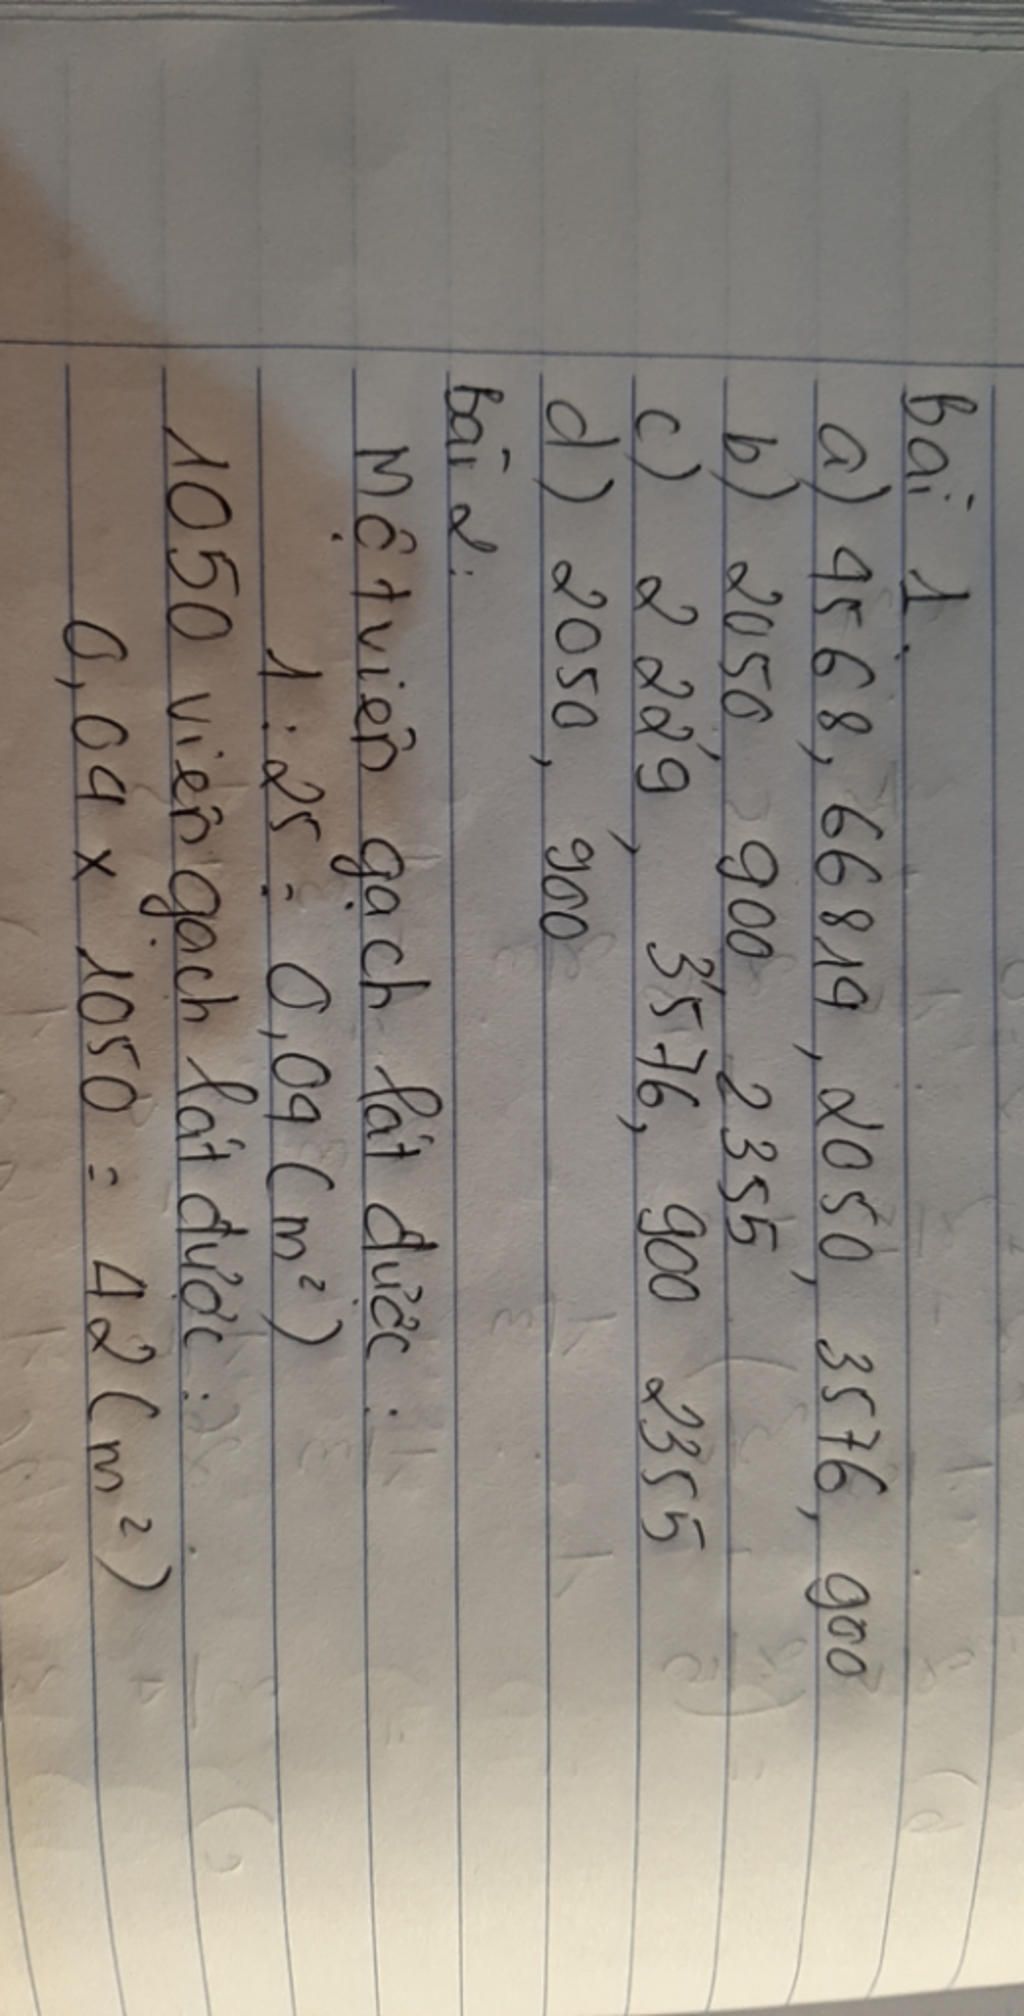 bài 1.
a) 4568, 66814, 2050, 3576, 900
b) 2050, 900, 2355
c) 2229, 3576, 900 2355
d) 2050, 900
bài 2:
Một viên gạch lát được :
1 : 25 = 0,04 (m²)
1050 viên gạch lát được :
0,04 x 1050 = 42 (m²)